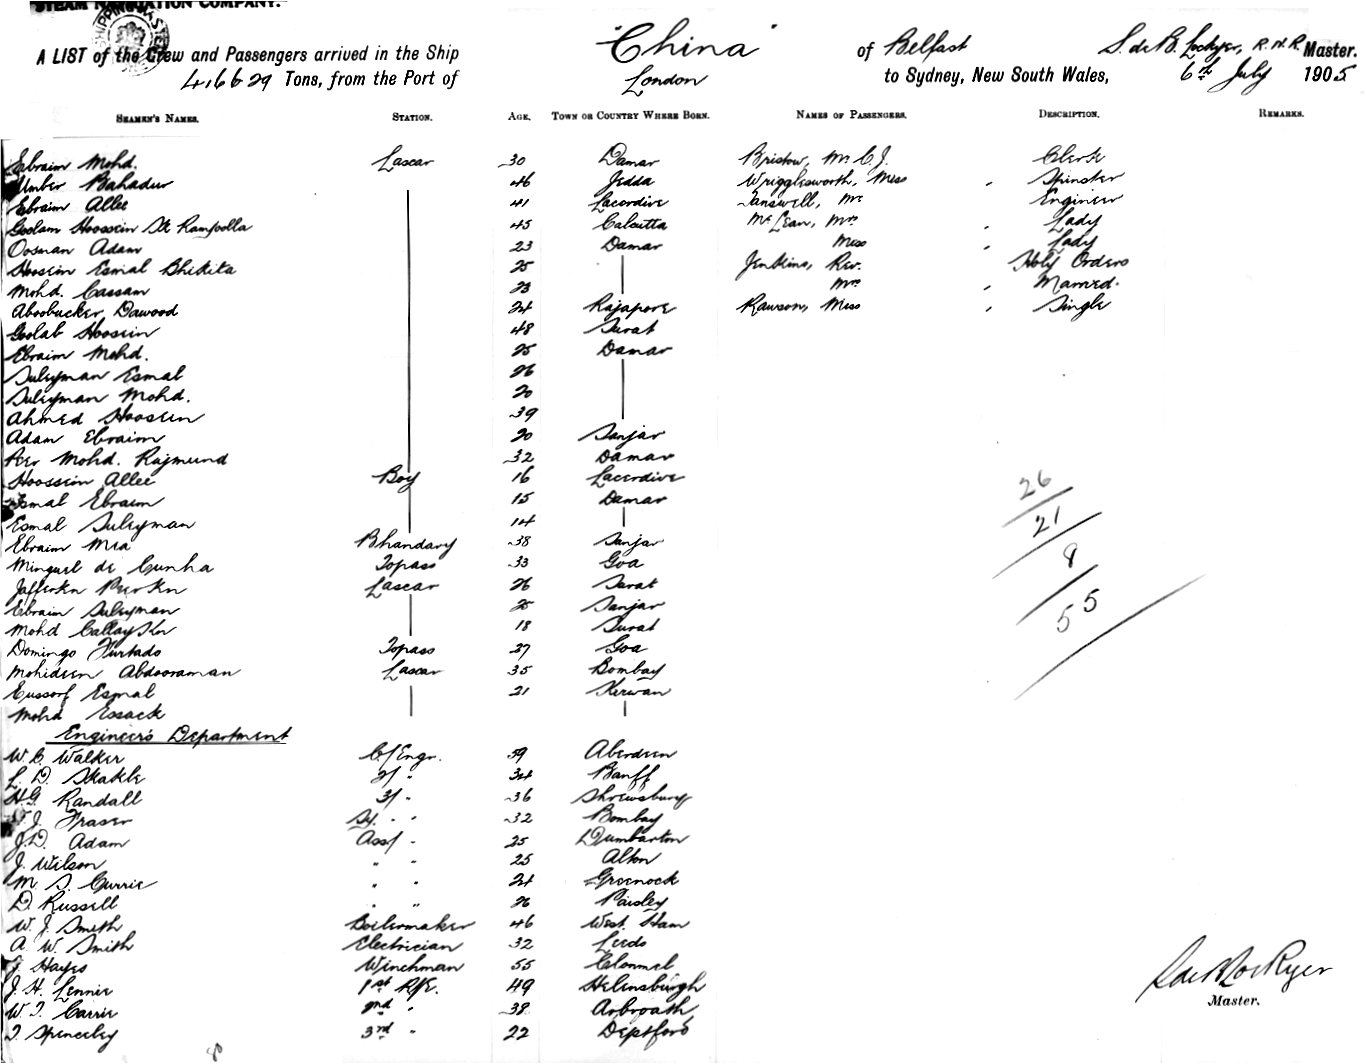 STEAM NAVIGATION COMPANY.
SHIPPING MASTER
A LIST of the Crew and Passengers arrived in the Ship "China" of Belfast S. de B. Lockyer, R.N.R. Master.
Tons, from the Port of London to Sydney, New South Wales, 6th July 1905
SEAMEN'S NAMES. STATION. AGE. TOWN OR COUNTRY WHERE BORN. NAMES OF PASSENGERS. DESCRIPTION. REMARKS.
Ebraim Mohd. Lascar 30 Damar Bristow, Mr C.J. Clerk
Umber Bahadur 46 Jedda Wrigglesworth, Miss " Spinster
Ebraim Allee 41 Lacerdive Tanswell, Mr Engineer
Goolam Hoossein Sk Rampolla 45 Calcutta McLean, Mrs " Lady
Oosman Adam 23 Damar Miss " Lady
Hoosein Esmal Bhikita 25 Jenkins, Rev. Holy Orders
Mohd. Cassam 23 Mrs " Married.
Aboobucker Dawood 24 Rajapore Rawson, Miss " Single
Goolab Hoosein 48 Surat
Ebraim Mohd. 25 Damar
Suleyman Esmal 26
Suleyman Mohd. 20
Ahmed Hoosein 39
Adam Ebraim 20 Sanjar
Peer Mohd. Rajmund 32 Damar
Hoossein Allee Boy 16 Lacerdive
Esmal Ebraim 15 Damar
Esmal Suleyman 14
Ebraim Mia Bhandary 38 Sanjar
Minguel de Cunha Topass 33 Goa
Jafferkn Peerkn Lascar 26 Surat
Ebraim Suleyman 25 Sanjar
Mohd Kn 18 Surat
Domingo Furtado Topass 27 Goa
Mohideen Abdooraman Lascar 35 Bombay
Eussoof Esmal 21 Kerwan
Mohd Essack
26
21
8
55
Engineers Department
W. C. Walker C/Engr. 39 Aberdeen
L. D. Skakle 2/ " 34 Banff
H.G. Randall 3/ " 36 Shrewsbury
J. Fraser " " 32 Bombay
J.D. Adam Asst " 25 Dumbarton
J. Wilson " " 25 Alton
M. S. Currie " " 24 Greenock
D. Russell " " 26 Paisley
W. J. Smith Boilermaker 46 West Ham
A. W. Smith Electrician 32 Leeds
J. Hayes Winchman 55 Clonmel
J. H. Lennie 1st R/E. 49 Helensburgh
W. T. Carrie 2nd " 38 Arbroath
T. Spenceley 3rd " 22 Deptford
S de B Lockyer
Master.